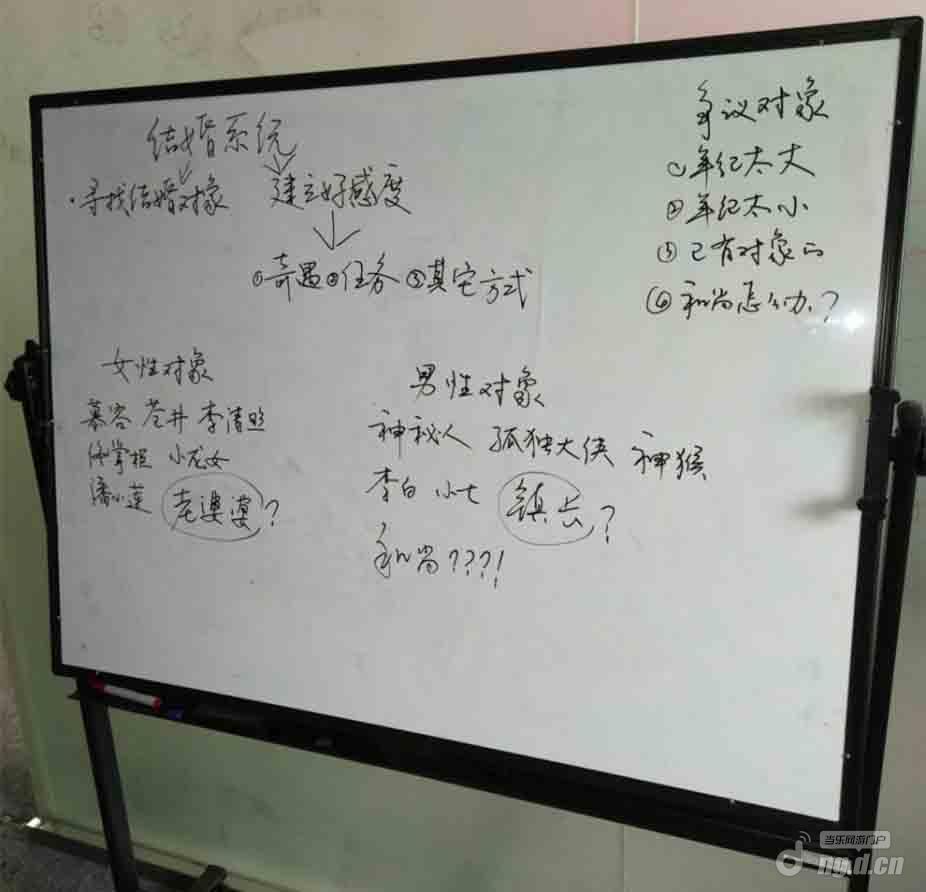 结婚系统
·寻找结婚对象 建立好感度
①奇遇②任务③其它方式
争议对象
①年纪太大
②年纪太小
③已有对象的
④和尚怎么办?
女性对象
慕容 苍井 李清照
佟掌柜 小龙女
潘小莲 老婆婆?
男性对象
神秘人 孤独大侠 神猴
李白 小七 镇长?
和尚???!
当乐网游门户
ng.d.cn